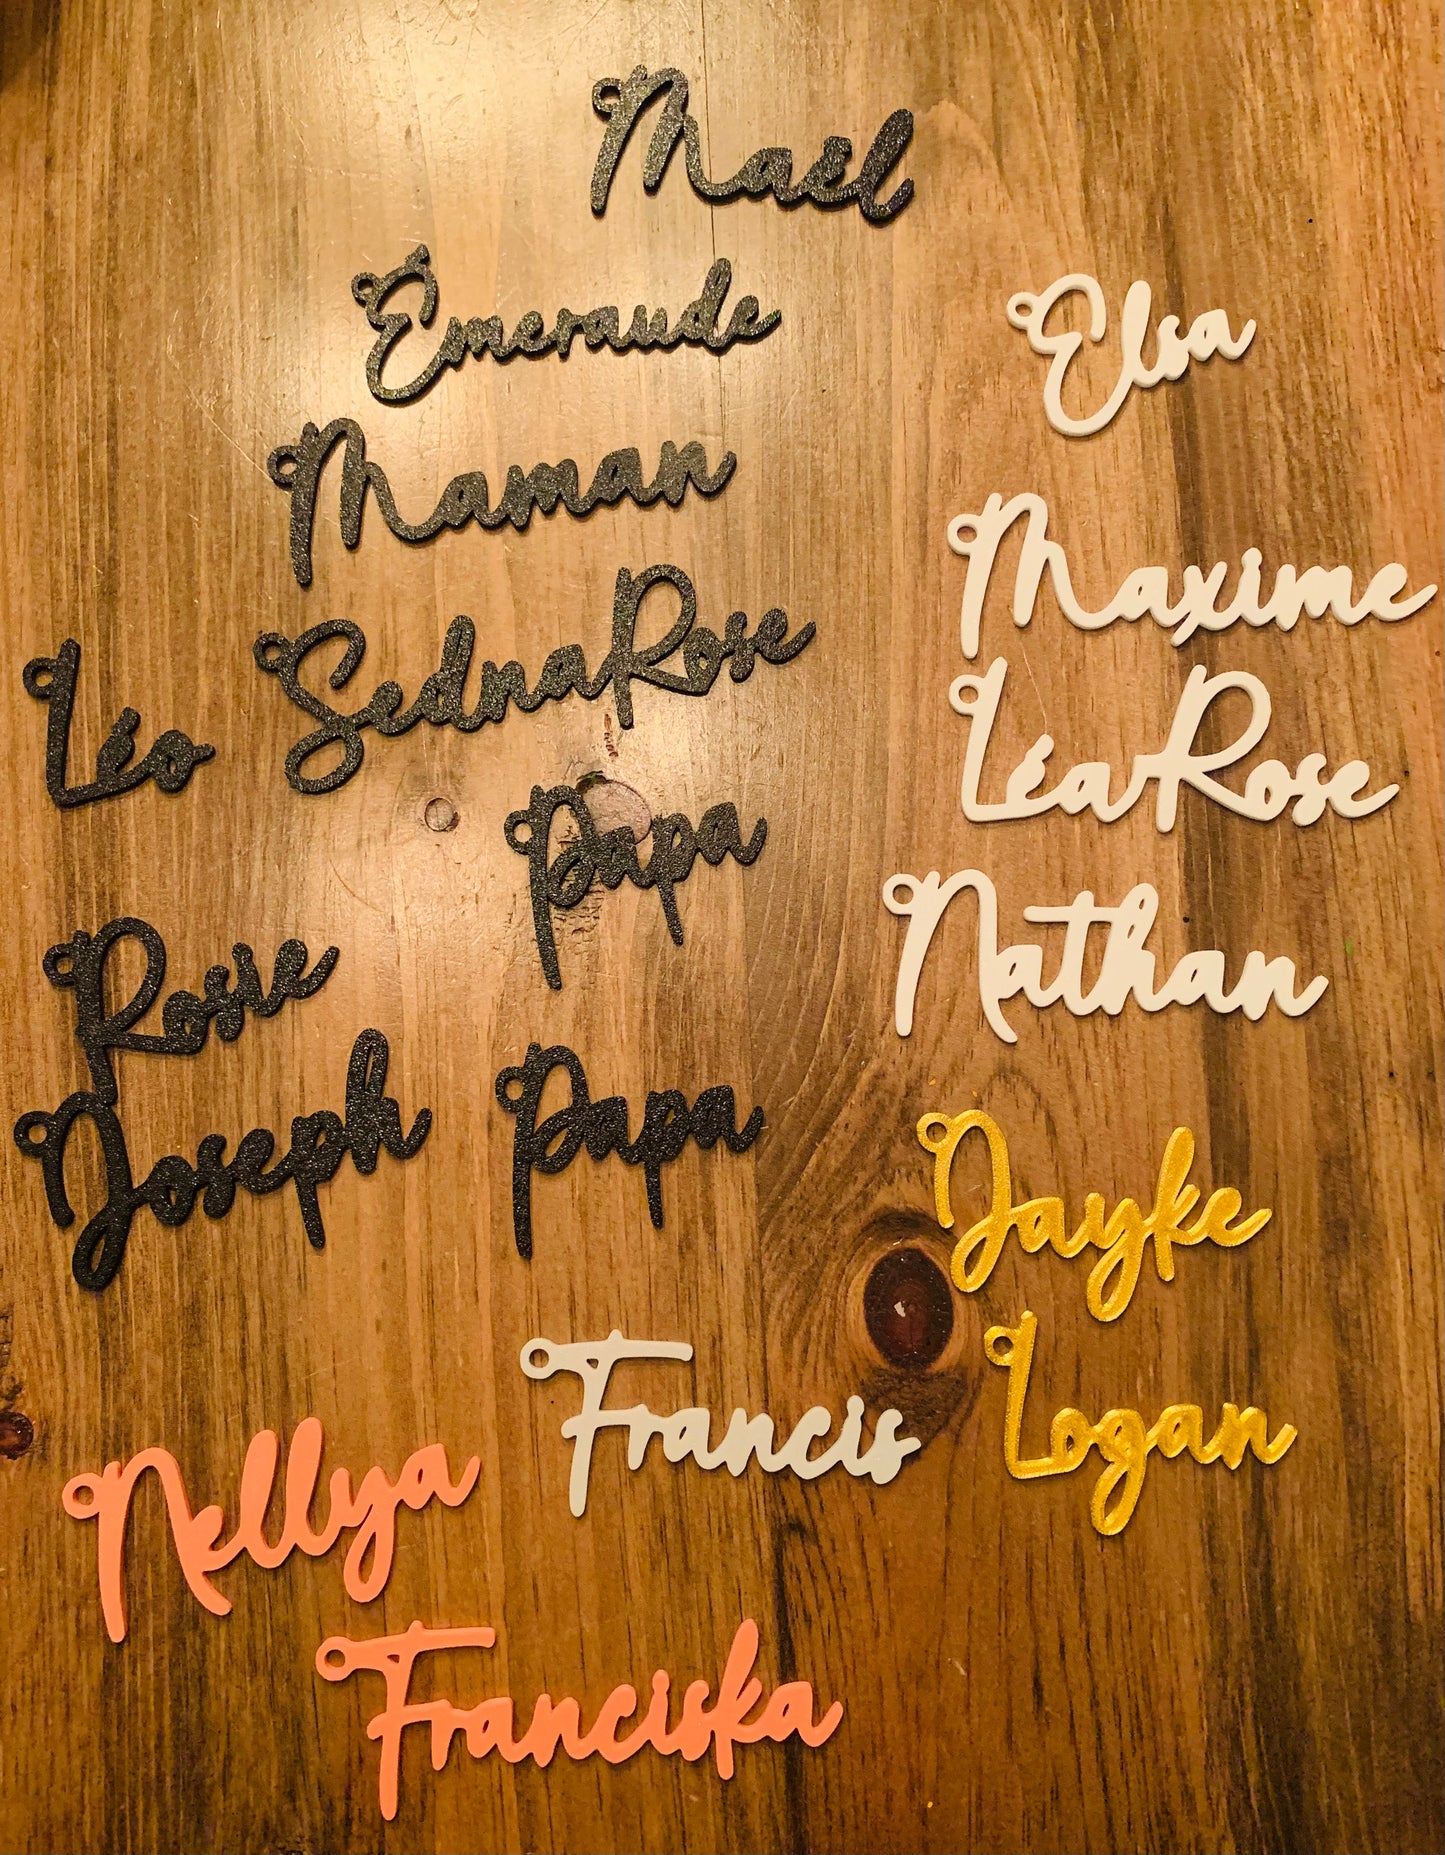 Maël
Émeraude
Elsa
Maman
Maxime
Léo
SednaRose
LéaRose
Papa
Nathan
Rosie
Joseph
Papa
Jayke
Francis
Logan
Nellya
Franciska